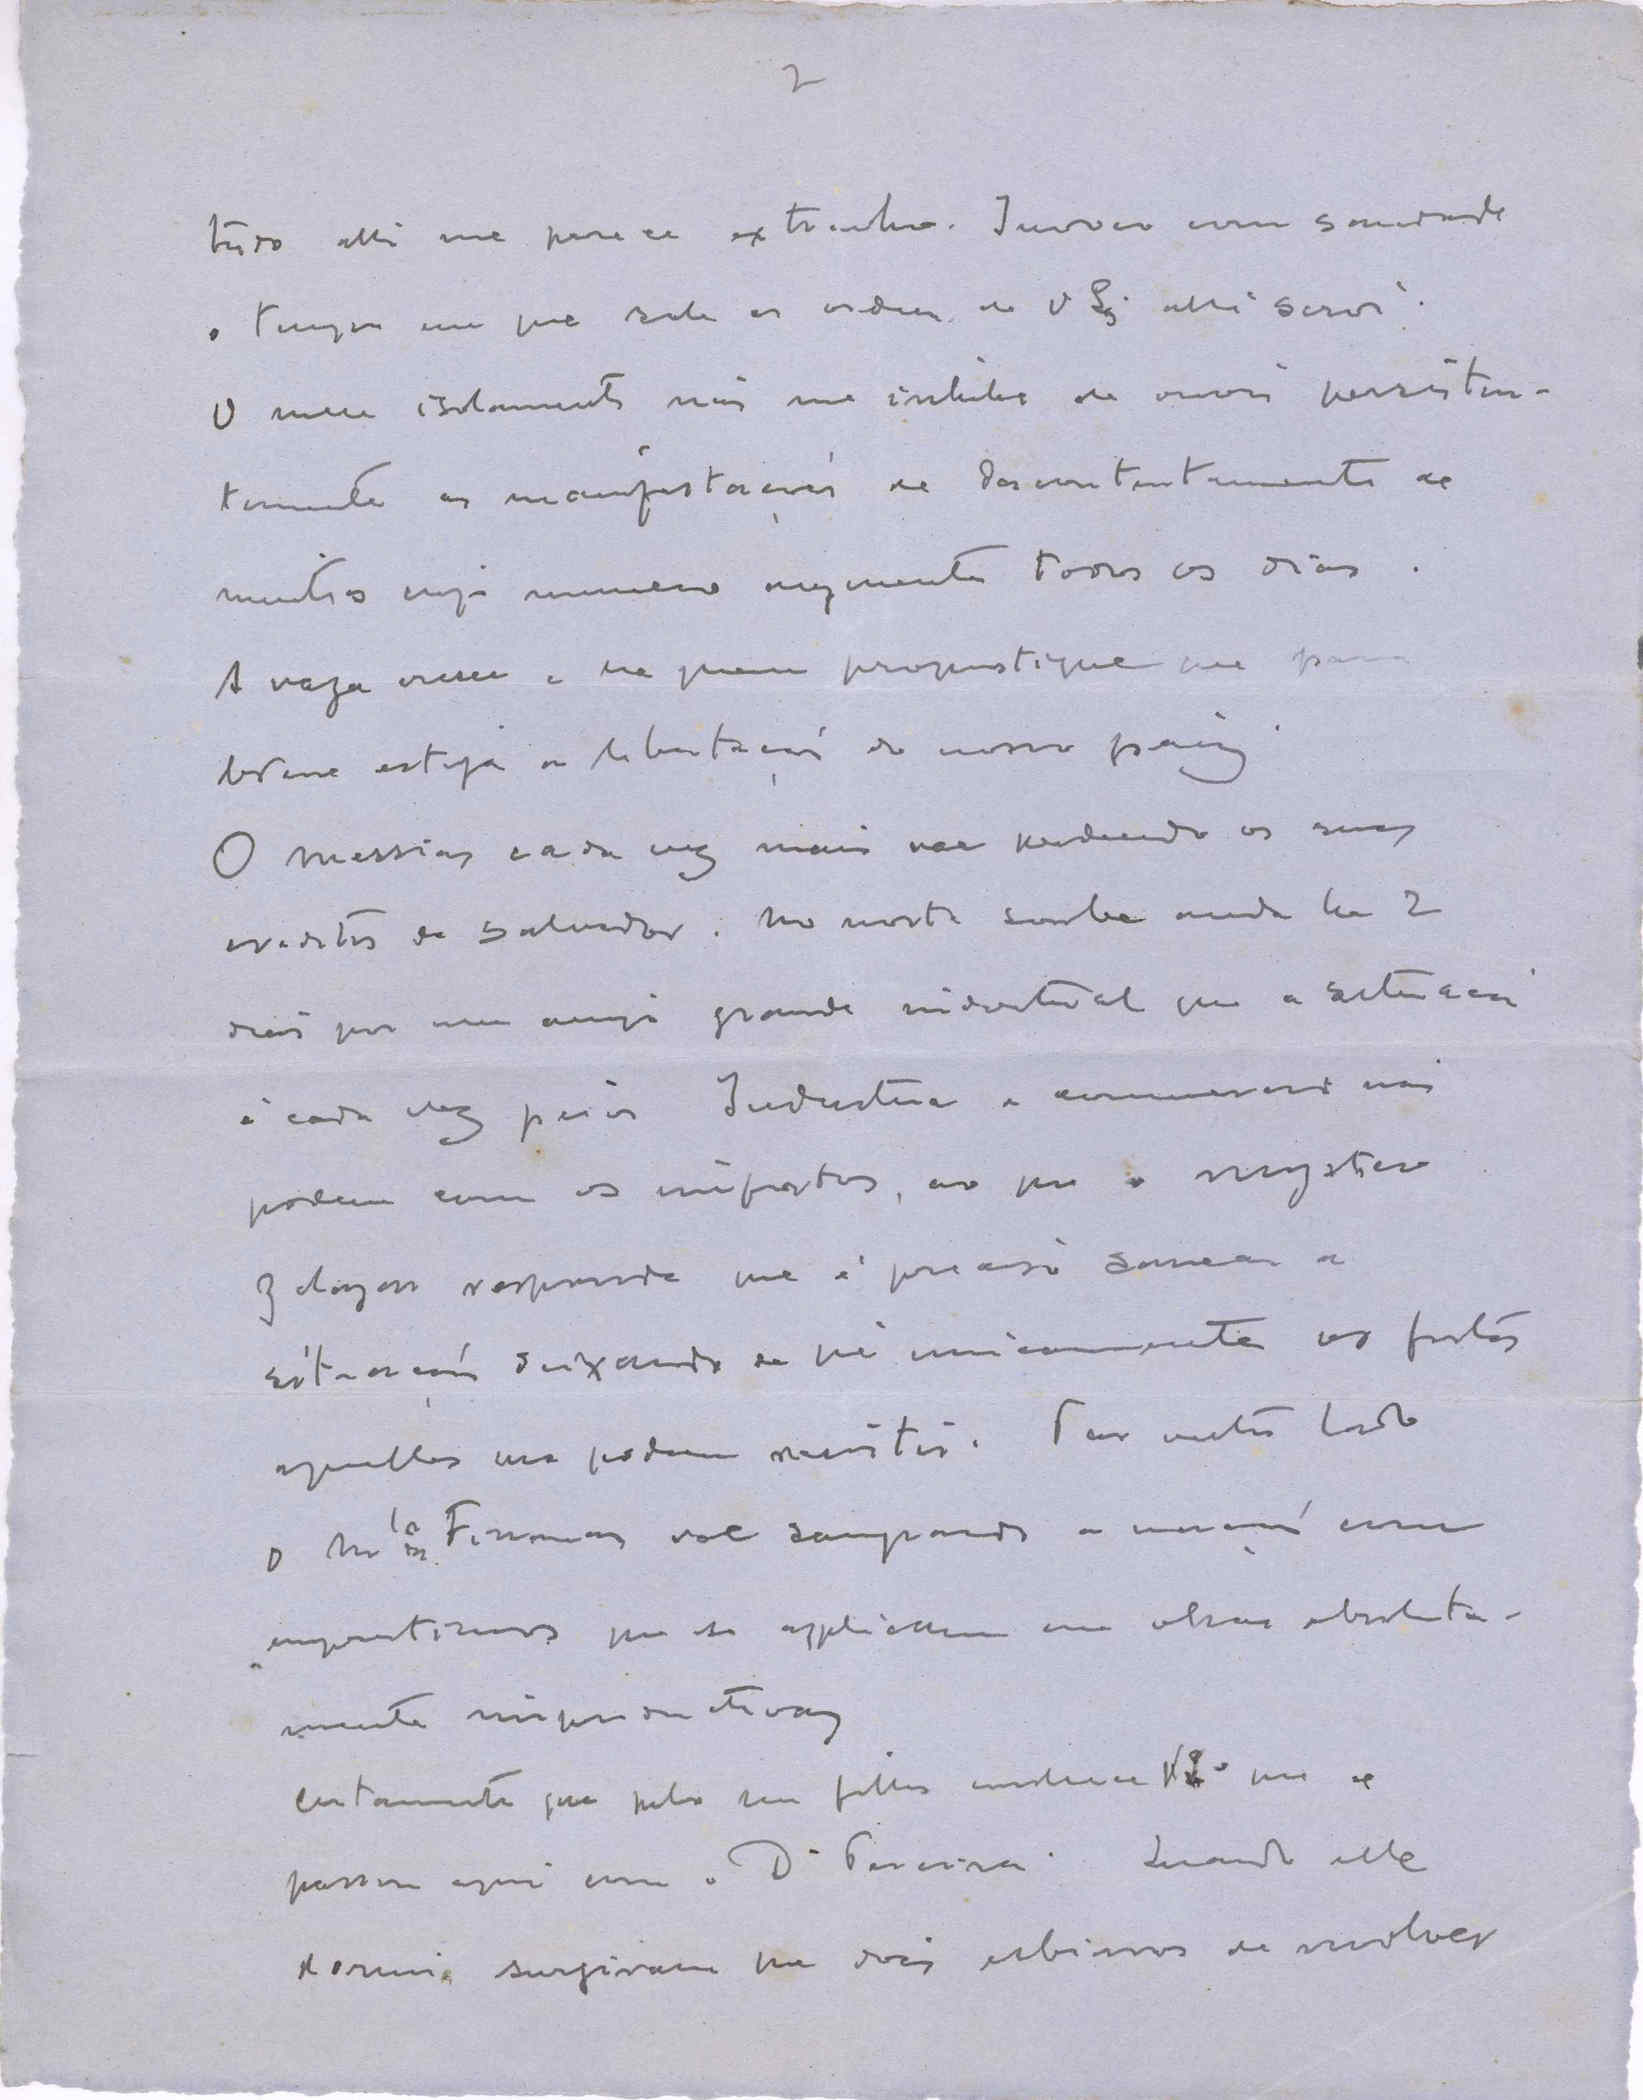 2
tudo alli me parece extranho. Invoco com saudade
o tempo em que sob as ordens de V Exª alli servi.
O meu isolamento não me inhibe de ouvir persisten-
temente as manifestações de descontentamento de
muitos cujo numero augmenta todos os dias.
A vaga cresce e ha quem prognostique que para
breve esteja a libertação do nosso paiz.
O Messias cada vez mais vae perdendo os seus
creditos de salvador. No norte soube ainda ha 2
dias por um amigo grande industrial que a situação
é cada vez peior Industria e commercio não
podem com os impostos, ao que o
responde que é preciso sanear a
situação deixando de pé unicamente os fortes
aquelles que podem resistir. Por outro lado
o Mº das Finanças vae sangrando a nação com
emprestimos que se applicam em obras absoluta-
mente improductivas
Certamente que pelo seu filho conhece VExª que se
passou aqui com o Dr Pereira. Quando elle
dormia surgiram lhe dois esbirros de revolver